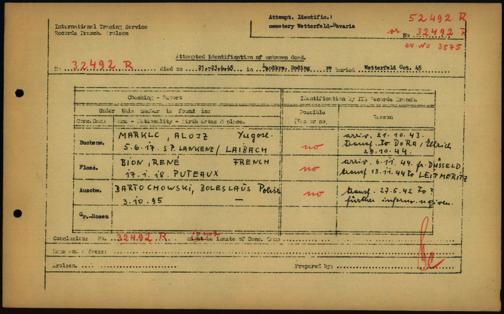 International Tracing Service
Records Branch Arolsen
Attempt. Identific.:
cemetery Wetterfeld-Bavaria
52492 R
No 32492 R
Attempted identification of unknown dead.
No 32492 R died on 21.-23.4.45 in Roding or buried Wetterfeld Oct. 45
Checking - Report
Identification by ITS Records Branch.
Under this number is found in:
Possible
Conc. Camp
Name - Nationality - Birth dates & place.
Yes or no
Reason
Buchenw.
MARKLC, ALOJZ Yugosl.
5.6.17. ST. LANKENZ / LAIBACH
no
arriv. 21.10.43.
transf. to DORA, Ellrich
29.10.44.
Floss.
BION, RENÉ FRENCH
17.1.18. PUTEAUX
no
arriv. 6.11.44. fr. DÜSSELD.
transf. 13.11.44 to LEITMERITZ
Auschw.
BARTOCHOWSKI, BOLESLAUS Polish
3.10.95 —
no
transf. 27.5.42 to ?
further inform. n. given.
Gr.-Rosen
Conclusion: No. 32492 R inmate of Conc. Camp
Arolsen,
Prepared by: